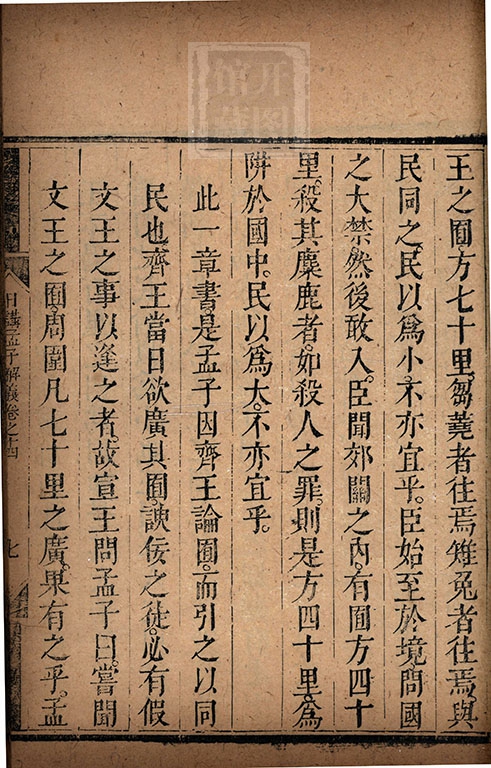 王之囿方七十里芻蕘者往焉雉兔者往焉與
民同之。民以爲小。不亦宜乎。臣始至於境。問國
之大禁。然後敢入。臣聞郊關之內。有囿方四十
里。殺其麋鹿者。如殺人之罪。則是方四十里。爲
阱於國中。民以爲大。不亦宜乎。
此一章書。是孟子因齊王論囿。而引之以同
民也。齊王當日欲廣其囿。諛佞之徒。必有假
文王之事以逢之者。故宣王問孟子曰。嘗聞
文王之囿。周圍凡七十里之廣。果有之乎。孟
日講孟子解義卷之十四
七